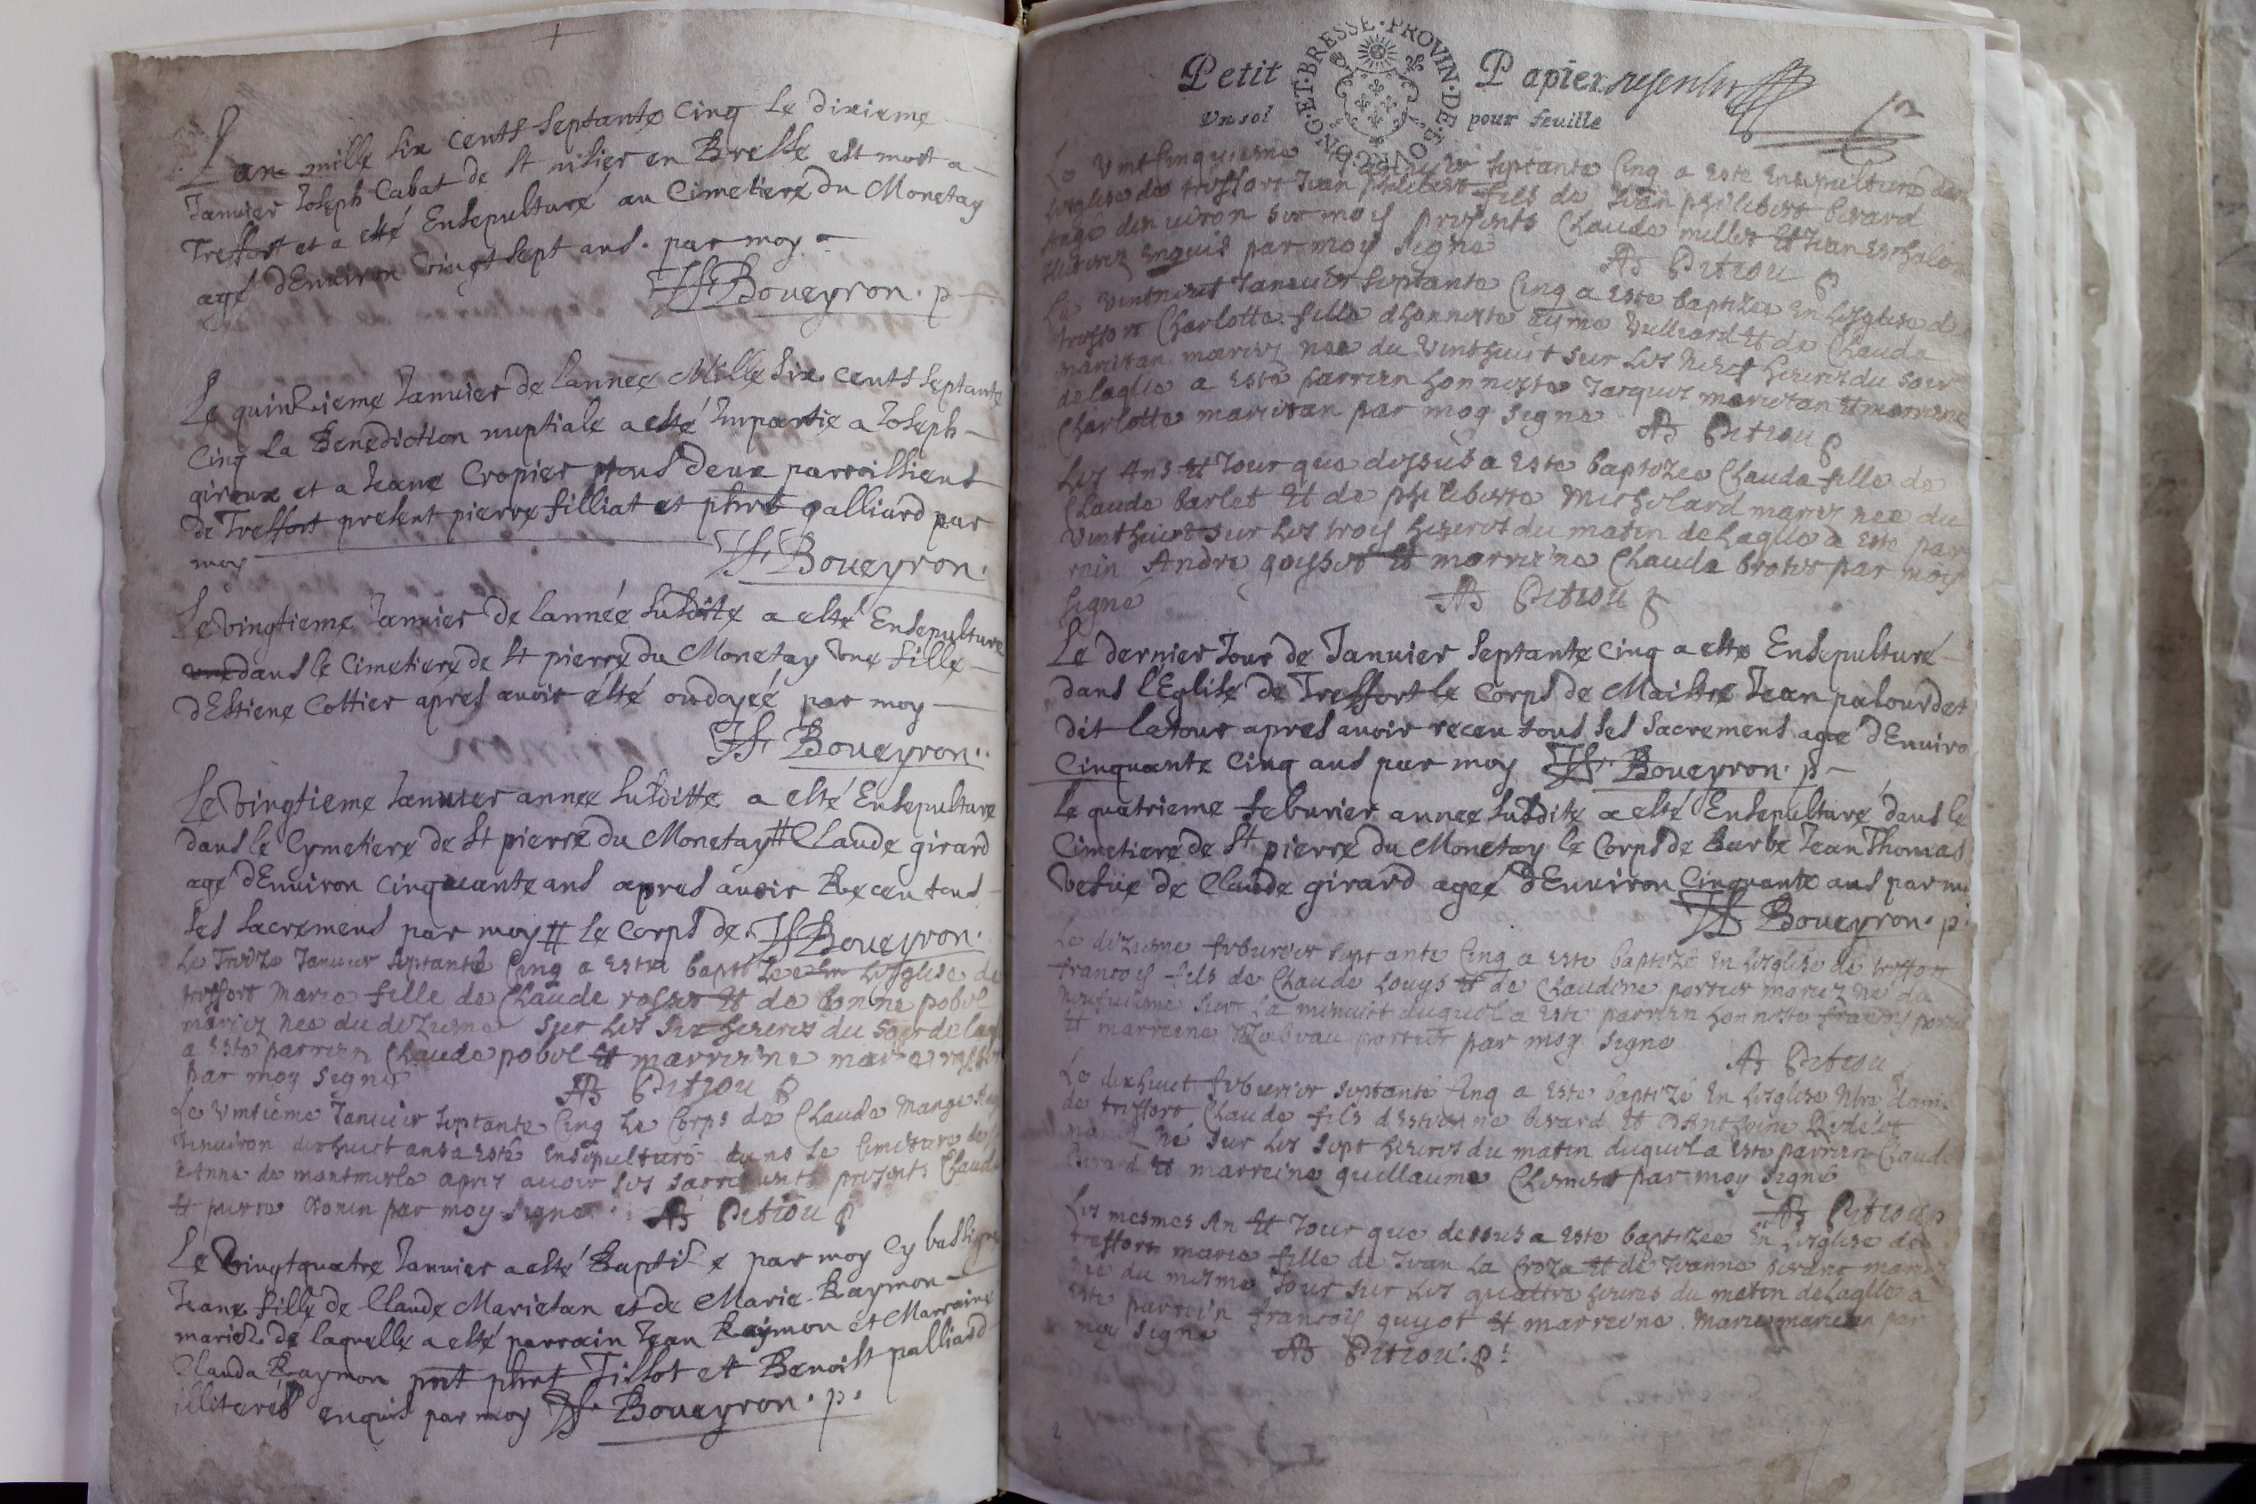 Lan mille six cents septante cinq le dixieme
Januier Joseph Cabat de st nisier en Bresse est mort a
Treffort et a esté Ensepulturé au Cimetiere du Monetay
agé dEnuiron vingt sept ans. par moy
Boueyron. p
Le quinzieme Januier de lannee Mille six cents septante
cinq la Benediction nuptiale a esté Impartie a Joseph
giroux et a Jeane Cropier tous deux parroissiens
de Treffort present pierre filliat et phrt palliard par
moy Boueyron.
Le vingtieme Januier de lannée susdite a esté Ensepulture
dans le Cimetiere de st pierre du Monetay Vne fille
dEstiene Cottier apres auoir ésté ondoyée par moy
Boueyron.
Le vingtieme Januier annee susditte a esté Ensepulture
dans le Cymetiere de st pierre du Monetay # Claude girard
agé dEnuiron cinquante ans apres auoir Receu tous
ses sacremens par moy # le corps de. Boueyron.
Le Treize Januier septante Cinq a este baptizee en Lesglise de
treffort Marie fille de Claude rosset et de bonne pobel
mariez nee du dizieme sur les six heures du soir de laq
a este parrein Claude pobel et marreine marie rosset
par moy signe Pitiou
Le vintieme Januier septante Cinq Le Corps de Claude Mange
denuiron dixhuict ans a este Ensepulturé dans le Cimetiere de
Anne de montmerle apres auoir ses sacrements presents Claude
et pierre Ronin par moy signe Pitiou
Le vingtquatre Januier a esté Baptisée par moy Cy bas signe
Jeane fille de Claude Marietan et de Marie Raymon
mariez de laquelle a esté parrain Jean Raymon et Marraine
Clauda Raymon pnt phrt Tissot et Benoist palliard
illiteres enquis par moy Boueyron. p.
Petit Papier
Vn sol pour feuille
BRESSE PROVIN DE BOVRGONG ET
Le vintcinquieme Januier septante Cinq a este ensepulturé dans
Lesglise de treffort Jean philibert fils de Jean philibert berard
Aagé denuiron six moys presents Claude millet et Jean
enquis par moy signe Pitiou
Le vintneuf Januier septante Cinq a este baptizee en Lesglise de
treffort Charlotte fille dhonneste ayme vulliard et de Claude
marietan mariez nee du vinthuit sur les neuf heures du soir
de laqlle a este parrein honneste Jacques marietan et marreine
Charlotte marietan par moy signe Pitiou
Les Ans et Jour que dessus a este baptizee Claude fille de
Claude barlet et de philiberte Micholard mariez nee du
vinthuict sur les trois heures du matin de laqlle a este par
rein Andre goysset et marreine Claude broter par moy
signe Pitiou
Le dernier Jour de Januier septante cinq a esté Ensepulturé
dans l'Eglise de Treffort le Corps de Maistre Jean palourdet
dit latour apres auoir receu tous ses sacremens age dEnuiro
Cinquante cinq ans par moy Boueyron. p
Le quatrieme feburier annee susdite a esté Ensepulturé dans le
Cimetiere de st pierre du Monetay le Corps de Barbe Jean Thomas
vefue de Claude girard agee dEnuiron cinquante ans par m
Boueyron. p.
Le dizieme feburier septante Cinq a este baptizé en Lesglise de treffort
francois fils de Claude Louys et de Claudine portier mariez né du
neufuieme sur la minuict duquel a este parrein honneste francois portier
et marreine portier par moy signe
Pitiou
Le dixhuict feburier septante cinq a este baptizé en Lesglise Nre dame
de treffort Claude fils destienne berard et dAnthoine
né sur les sept heures du matin duquel a este parrein Claude
berard et marreine guillauma par moy signé
Pitiou
Les mesmes An et Jour que dessus a este baptizee en Lesglise de
treffort marie fille de Jean La Croza et de Jeanne mariez
nee du mesme Jour sur les quattre heures du matin de laqlle a
este parrein francois guyot et marreine Marie marietan par
moy signe Pitiou